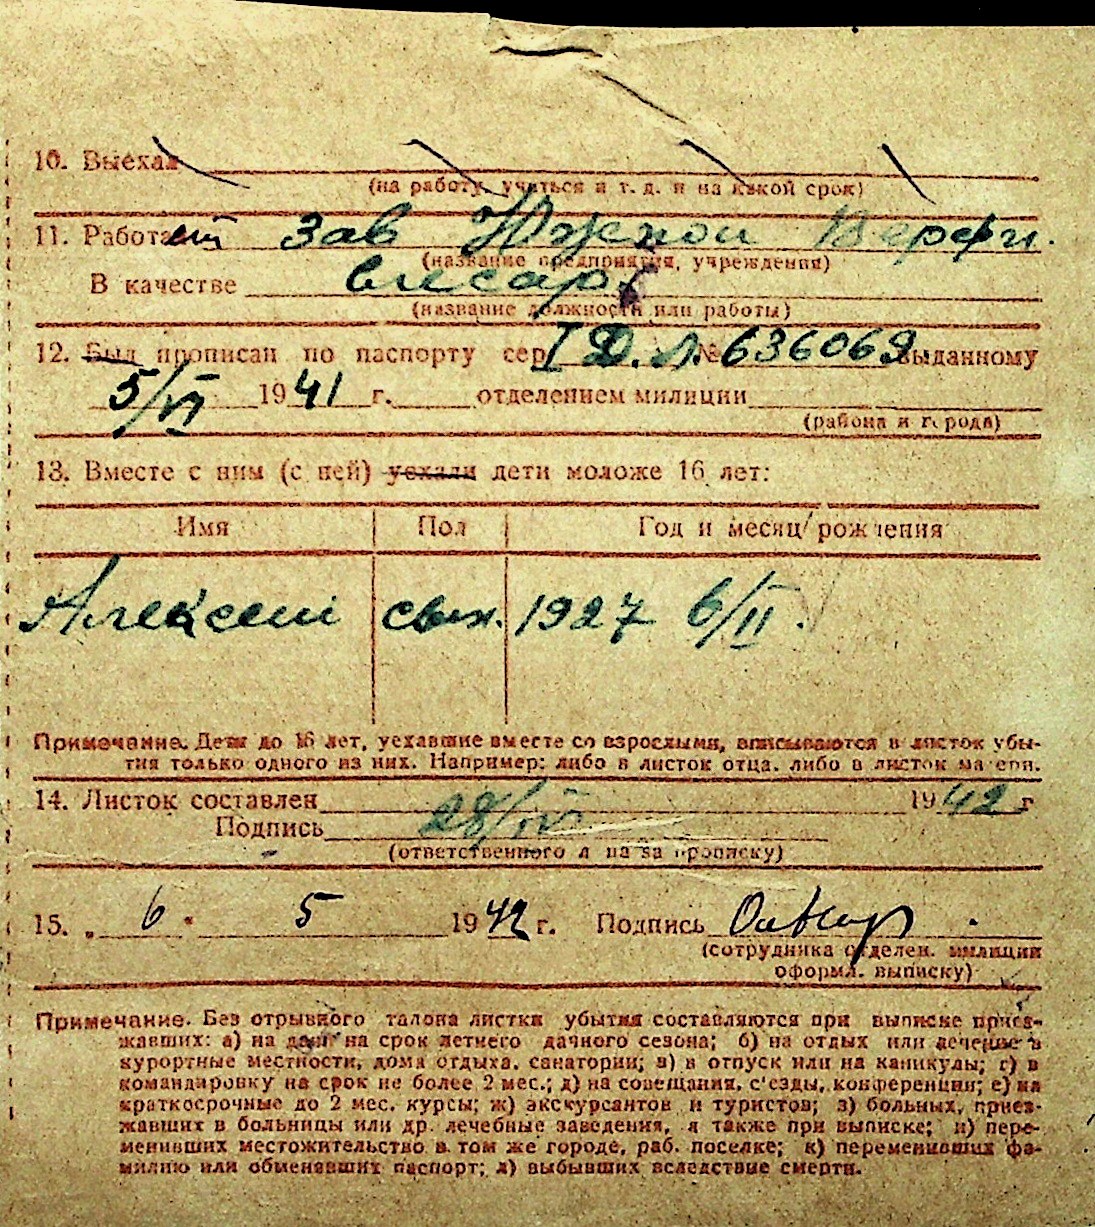 10. Выехал
(на работу, учиться и т. д. и на какой срок)
11. Работает зав Южной Верфи.
(название предприятия, учреждения)
В качестве слесарь
(название должности или работы)
12. Был прописан по паспорту сер I Д. Л. № 636069 выданному
5/VI 1941 г. отделением милиции
(района и города)
13. Вместе с ним (с ней) уехали дети моложе 16 лет:
Имя Пол Год и месяц рождения
Алексей сын. 1927 6/II.
Примечание. Дети до 16 лет, уехавшие вместе со взрослыми, вписываются в листок убы-
тия только одного из них. Например: либо в листок отца, либо в листок матери.
14. Листок составлен 28/IV 1942 г
Подпись
(ответственного л на за прописку)
15. „ 6 " 5 1942 г. Подпись
(сотрудника отделен. милиции
оформл. выписку)
Примечание. Без отрывного талона листки убытия составляются при выписке приез-
жавших: а) на дачи на срок летнего дачного сезона; б) на отдых или лечение в
курортные местности, дома отдыха, санатории; в) в отпуск или на каникулы; г) в
командировку на срок не более 2 мес.; д) на совещания, с'езды, конференции; е) на
краткосрочные до 2 мес. курсы; ж) экскурсантов и туристов; з) больных, приез-
жавших в больницы или др. лечебные заведения, а также при выписке; и) пере-
менивших местожительство в том же городе, раб. поселке; к) переменивших фа-
милию или обменявших паспорт; л) выбывших вследствие смерти.